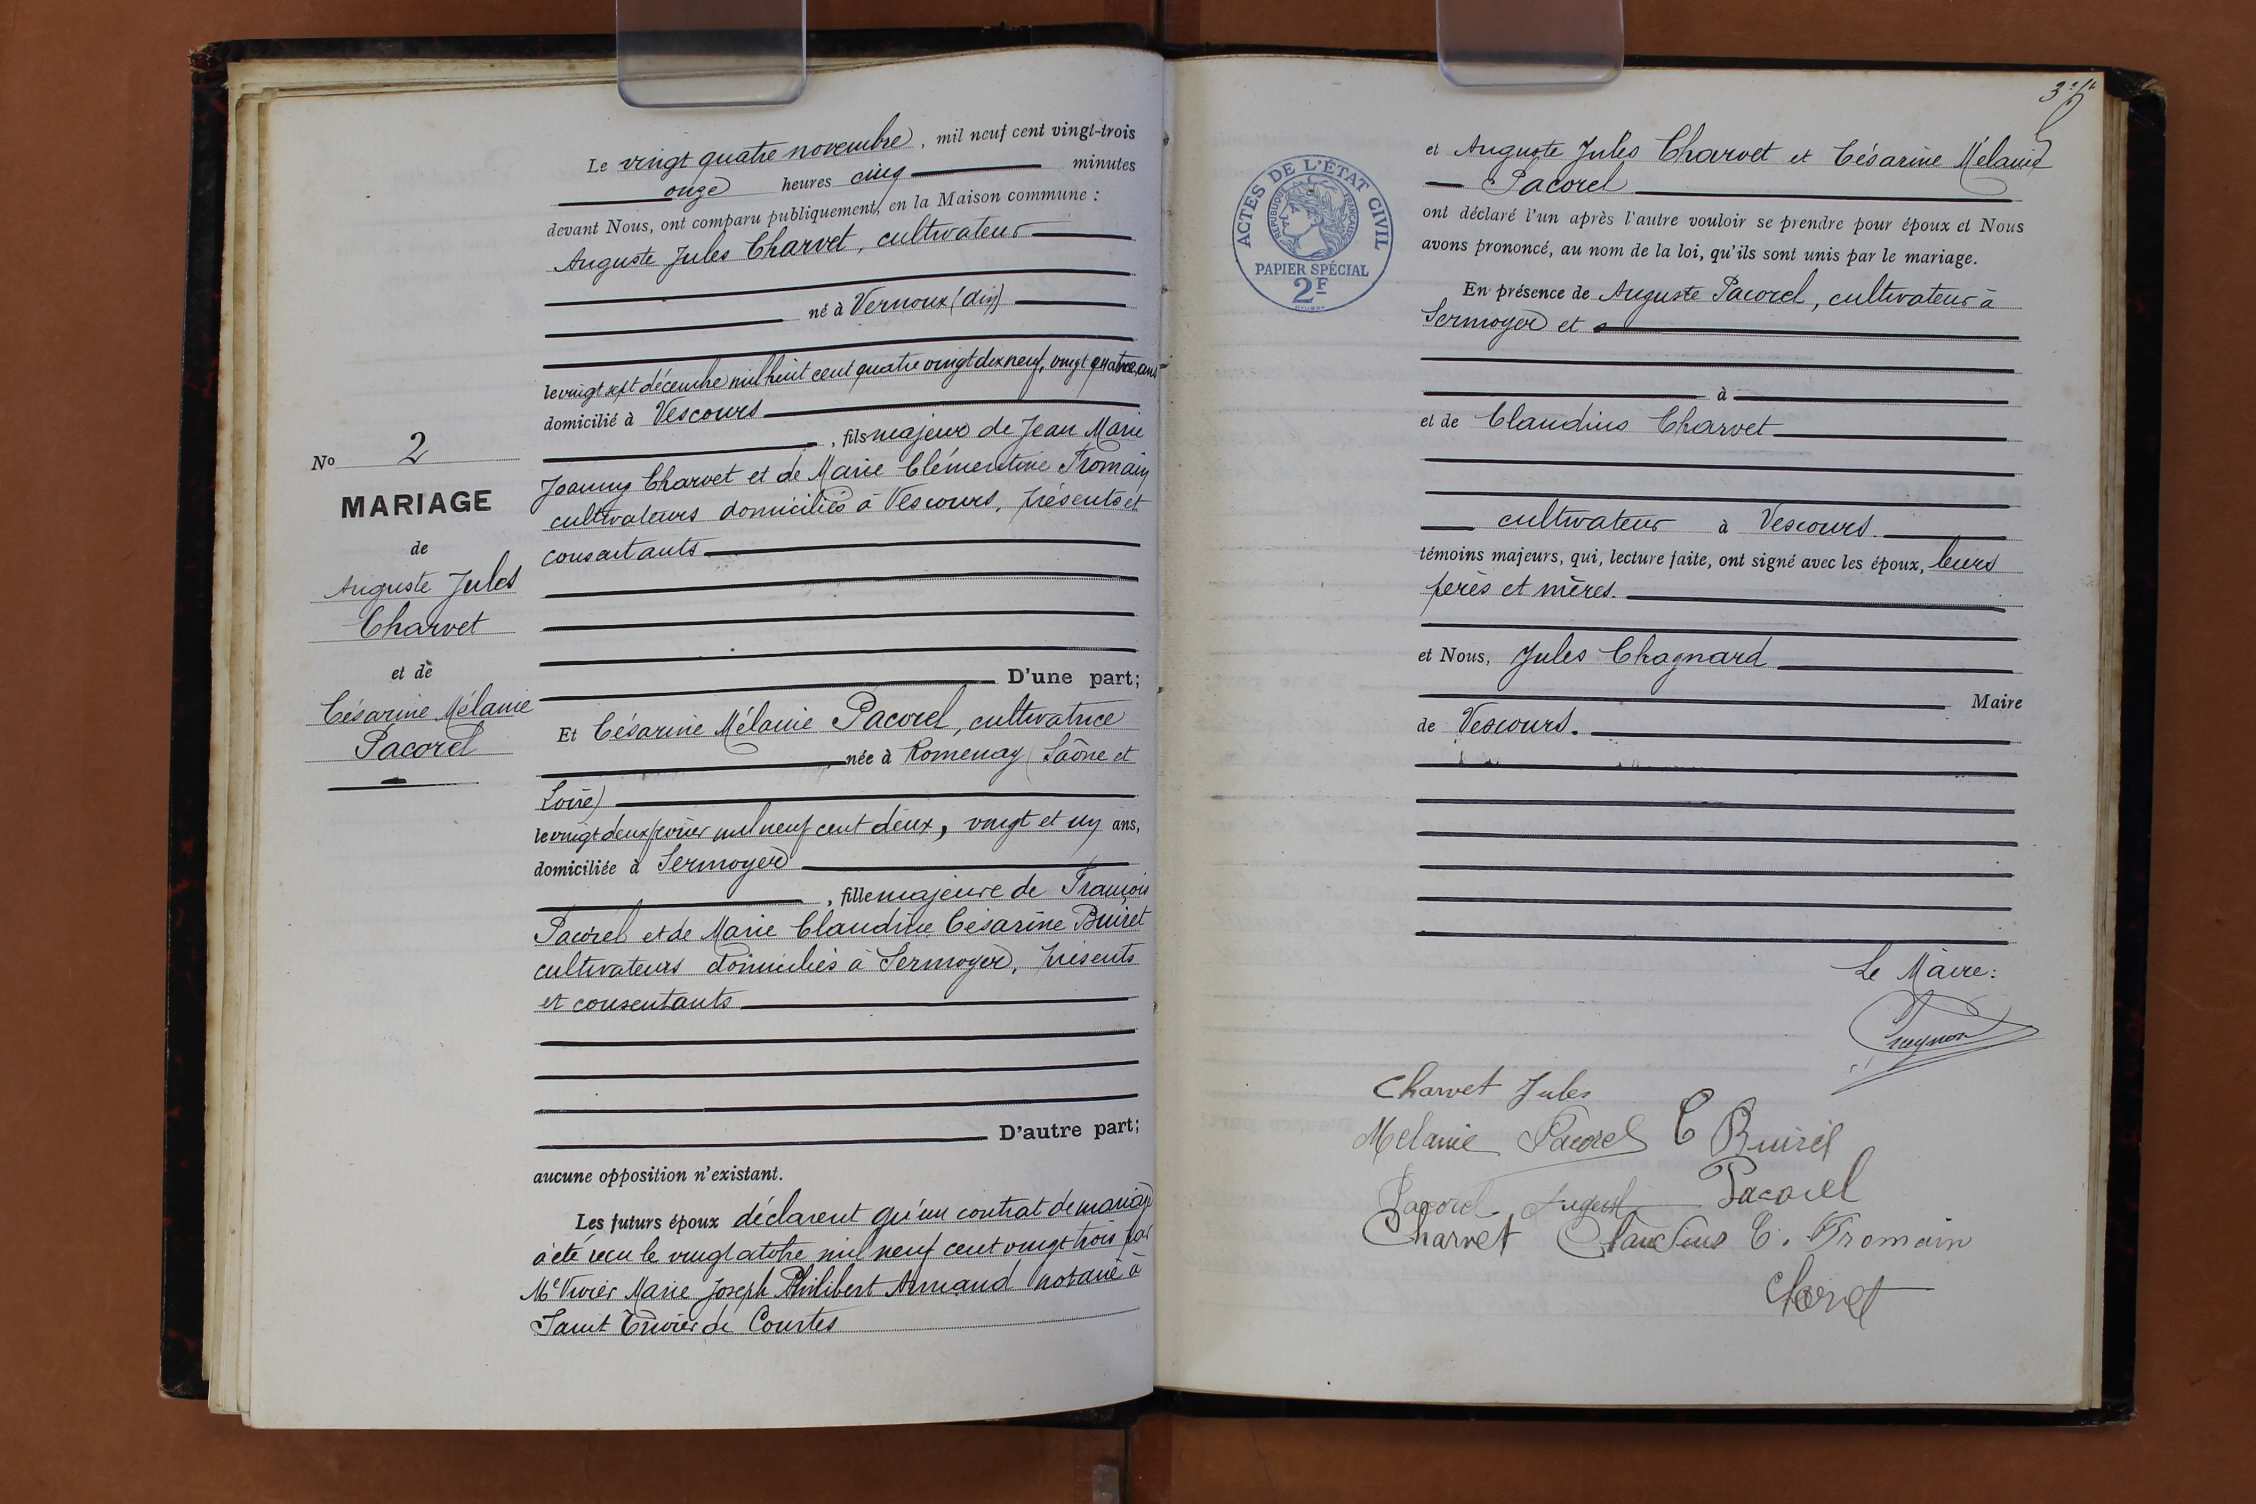 Le vingt quatre novembre, mil neuf cent vingt-trois
onze heures cinq minutes
devant Nous, ont comparu publiquement, en la Maison commune :
Auguste Jules Charvet, cultivateur
né à Vernoux (Ain)
le vingt sept décembre mil huit cent quatre vingt dix neuf, vingt quatre ans
domicilié à Vescours
, fils majeur de Jean Marie
Joanny Charvet et de Marie Clémentine Fromain
cultivateurs domiciliés à Vescours, présents et
consentants
D'une part;
No 2
MARIAGE
de
Auguste Jules
Charvet
et de
Césarine Mélanie
Pacorel
Et Césarine Mélanie Pacorel, cultivatrice
, née à Romenay (Saône et
Loire)
le vingt deux février mil neuf cent deux, vingt et un ans,
domiciliée à Sermoyer
, fille majeure de François
Pacorel et de Marie Claudine Césarine Buiret
cultivateurs domiciliés à Sermoyer, présents
et consentants
D'autre part;
aucune opposition n'existant.
Les futurs époux déclarent qu'un contrat de mariage
a été reçu le vingt octobre mil neuf cent vingt trois par
Me Vivier Marie Joseph Philibert Armand notaire à
Saint Trivier de Courtes
et Auguste Jules Charvet et Césarine Mélanie
Pacorel
ont déclaré l'un après l'autre vouloir se prendre pour époux et Nous
avons prononcé, au nom de la loi, qu'ils sont unis par le mariage.
ACTES DE L'ÉTAT CIVIL
RÉPUBLIQUE FRANÇAISE
PAPIER SPÉCIAL
2F
En présence de Auguste Pacorel, cultivateur à
Sermoyer et
à
et de Claudius Charvet
cultivateur à Vescours
témoins majeurs, qui, lecture faite, ont signé avec les époux, leurs
pères et mères.
et Nous, Jules Chagnard
Maire
de Vescours.
Le Maire:
Charvet Jules
Melanie Pacorel C Buirel
Pacorel August Pacorel
Charvet Claudius C. Fromain
Charvet